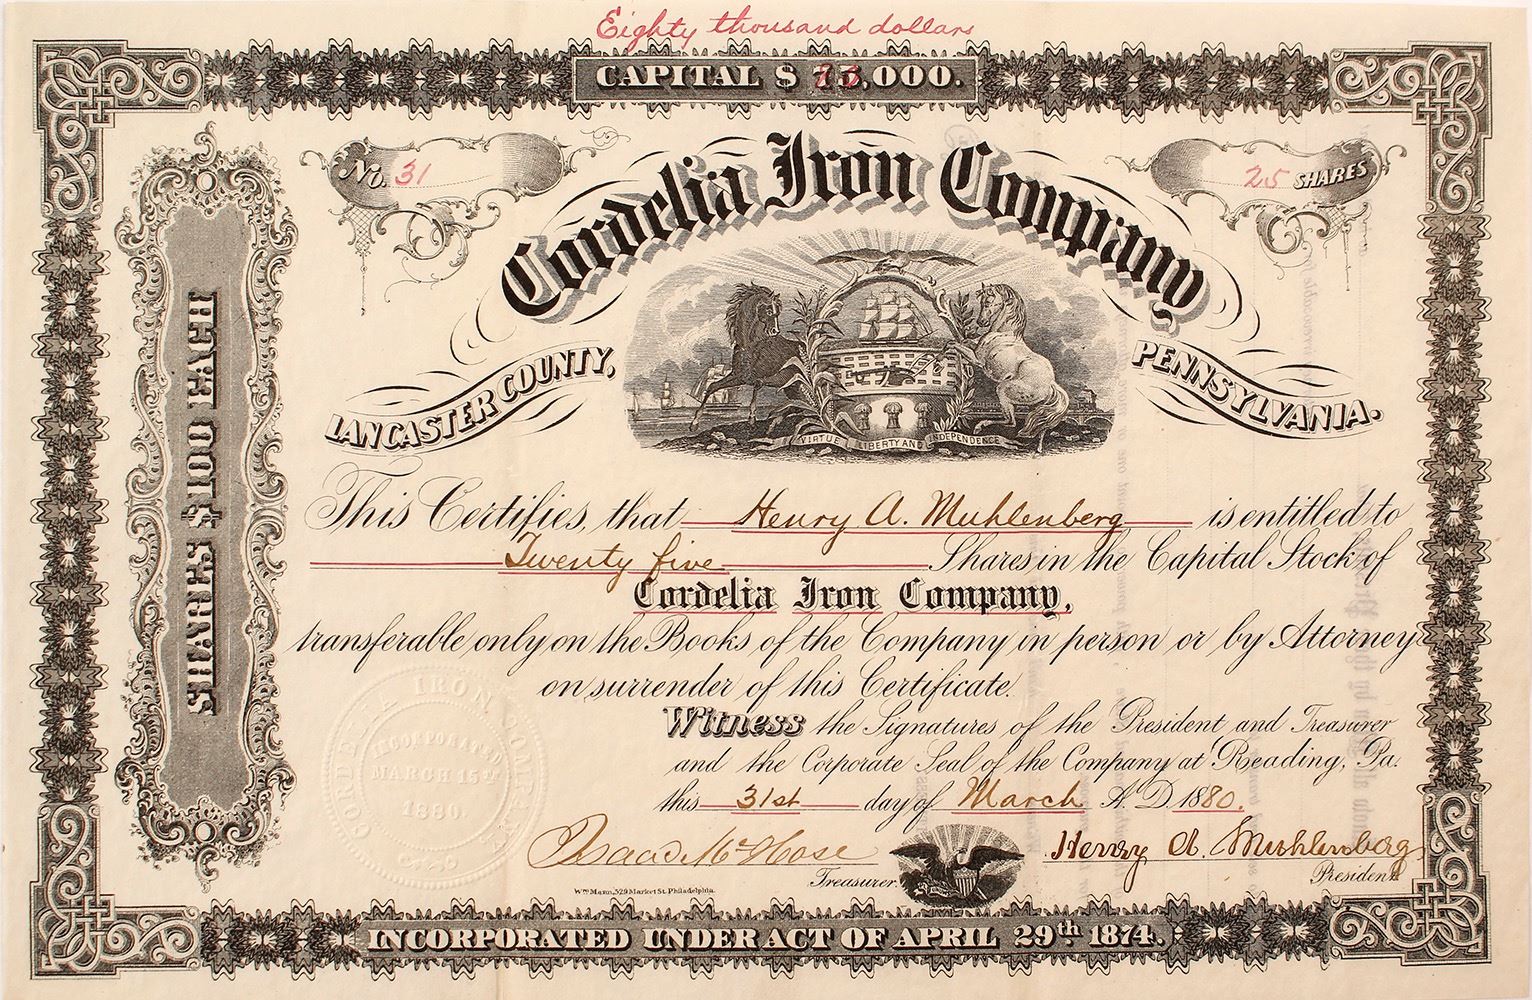 Eighty thousand dollars
CAPITAL $ 75,000.
No. 31
25 SHARES
Cordelia Iron Company
LANCASTER COUNTY,
PENNSYLVANIA.
VIRTUE LIBERTY AND INDEPENDENCE
SHARES $100 EACH
This Certifies, that Henry A. Muhlenberg is entitled to
Twenty five Shares in the Capital Stock of
Cordelia Iron Company,
transferable only on the Books of the Company in person or by Attorney
on surrender of this Certificate.
Witness the Signatures of the President and Treasurer
and the Corporate Seal of the Company at Reading, Pa.
this 31st day of March A. D. 1880.
CORDELIA IRON COMPANY
INCORPORATED
MARCH 15TH
1880.
Isaac McHose
Treasurer.
Henry A. Muhlenberg
President
Wm Mann, 529 Market St. Philadelphia.
INCORPORATED UNDER ACT OF APRIL 29th 1874.